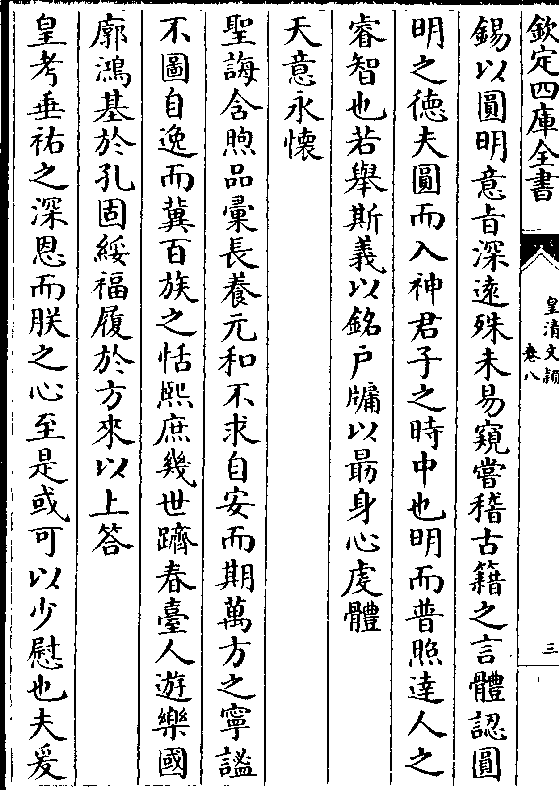 欽定四庫全書
皇清文穎
卷八
三
錫以圓明意㫖深逺殊未易窺嘗稽古籍之言體認圓
明之徳夫圓而入神君子之時中也明而普照達人之
睿智也若舉斯義以銘户牖以朂身心䖍體
天意永懷
聖誨含煦品彚長養元和不求自安而期萬方之寧謐
不圖自逸而冀百族之恬熙庶幾世躋春臺人遊樂國
廓鴻基於孔固綏福履於方來以上答
皇考垂祐之深恩而朕之心至是或可以少慰也夫爰